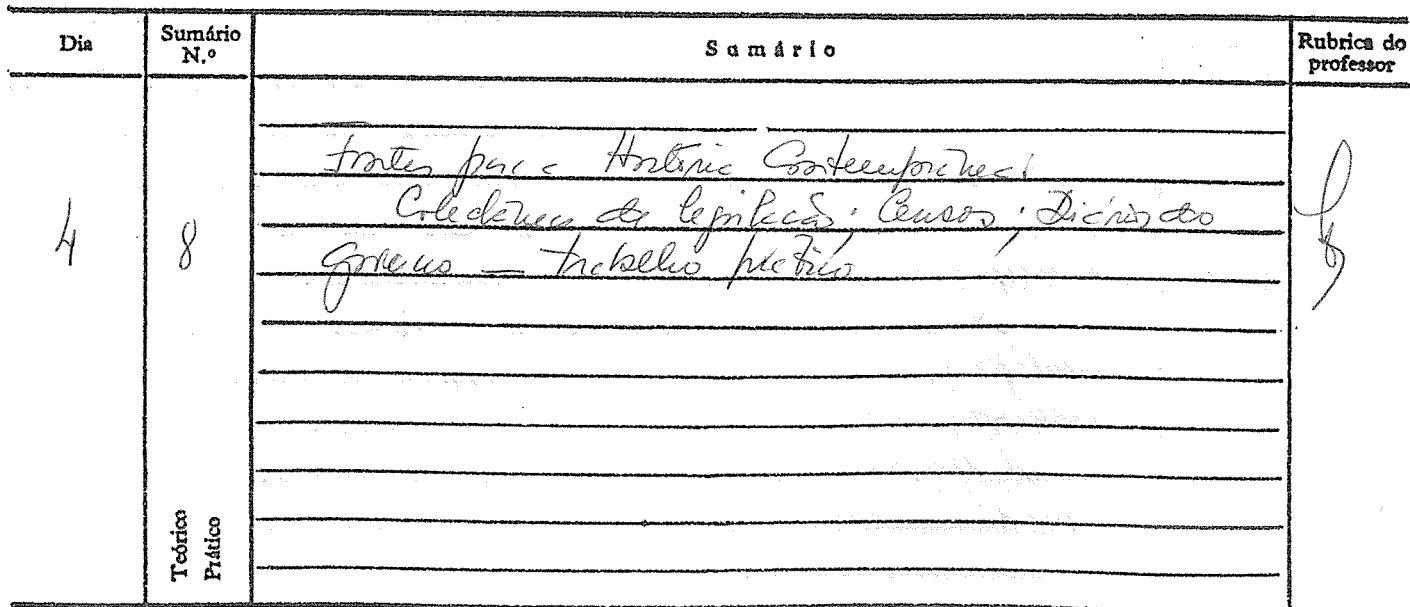 Dia
Sumário N.º
Sumário
Rubrica do professor
4
8
Fontes para a História Contemporânea:
Colectânea de legislação; Censos; Diários do
Governo — trabalho prático
Teórico
Prático